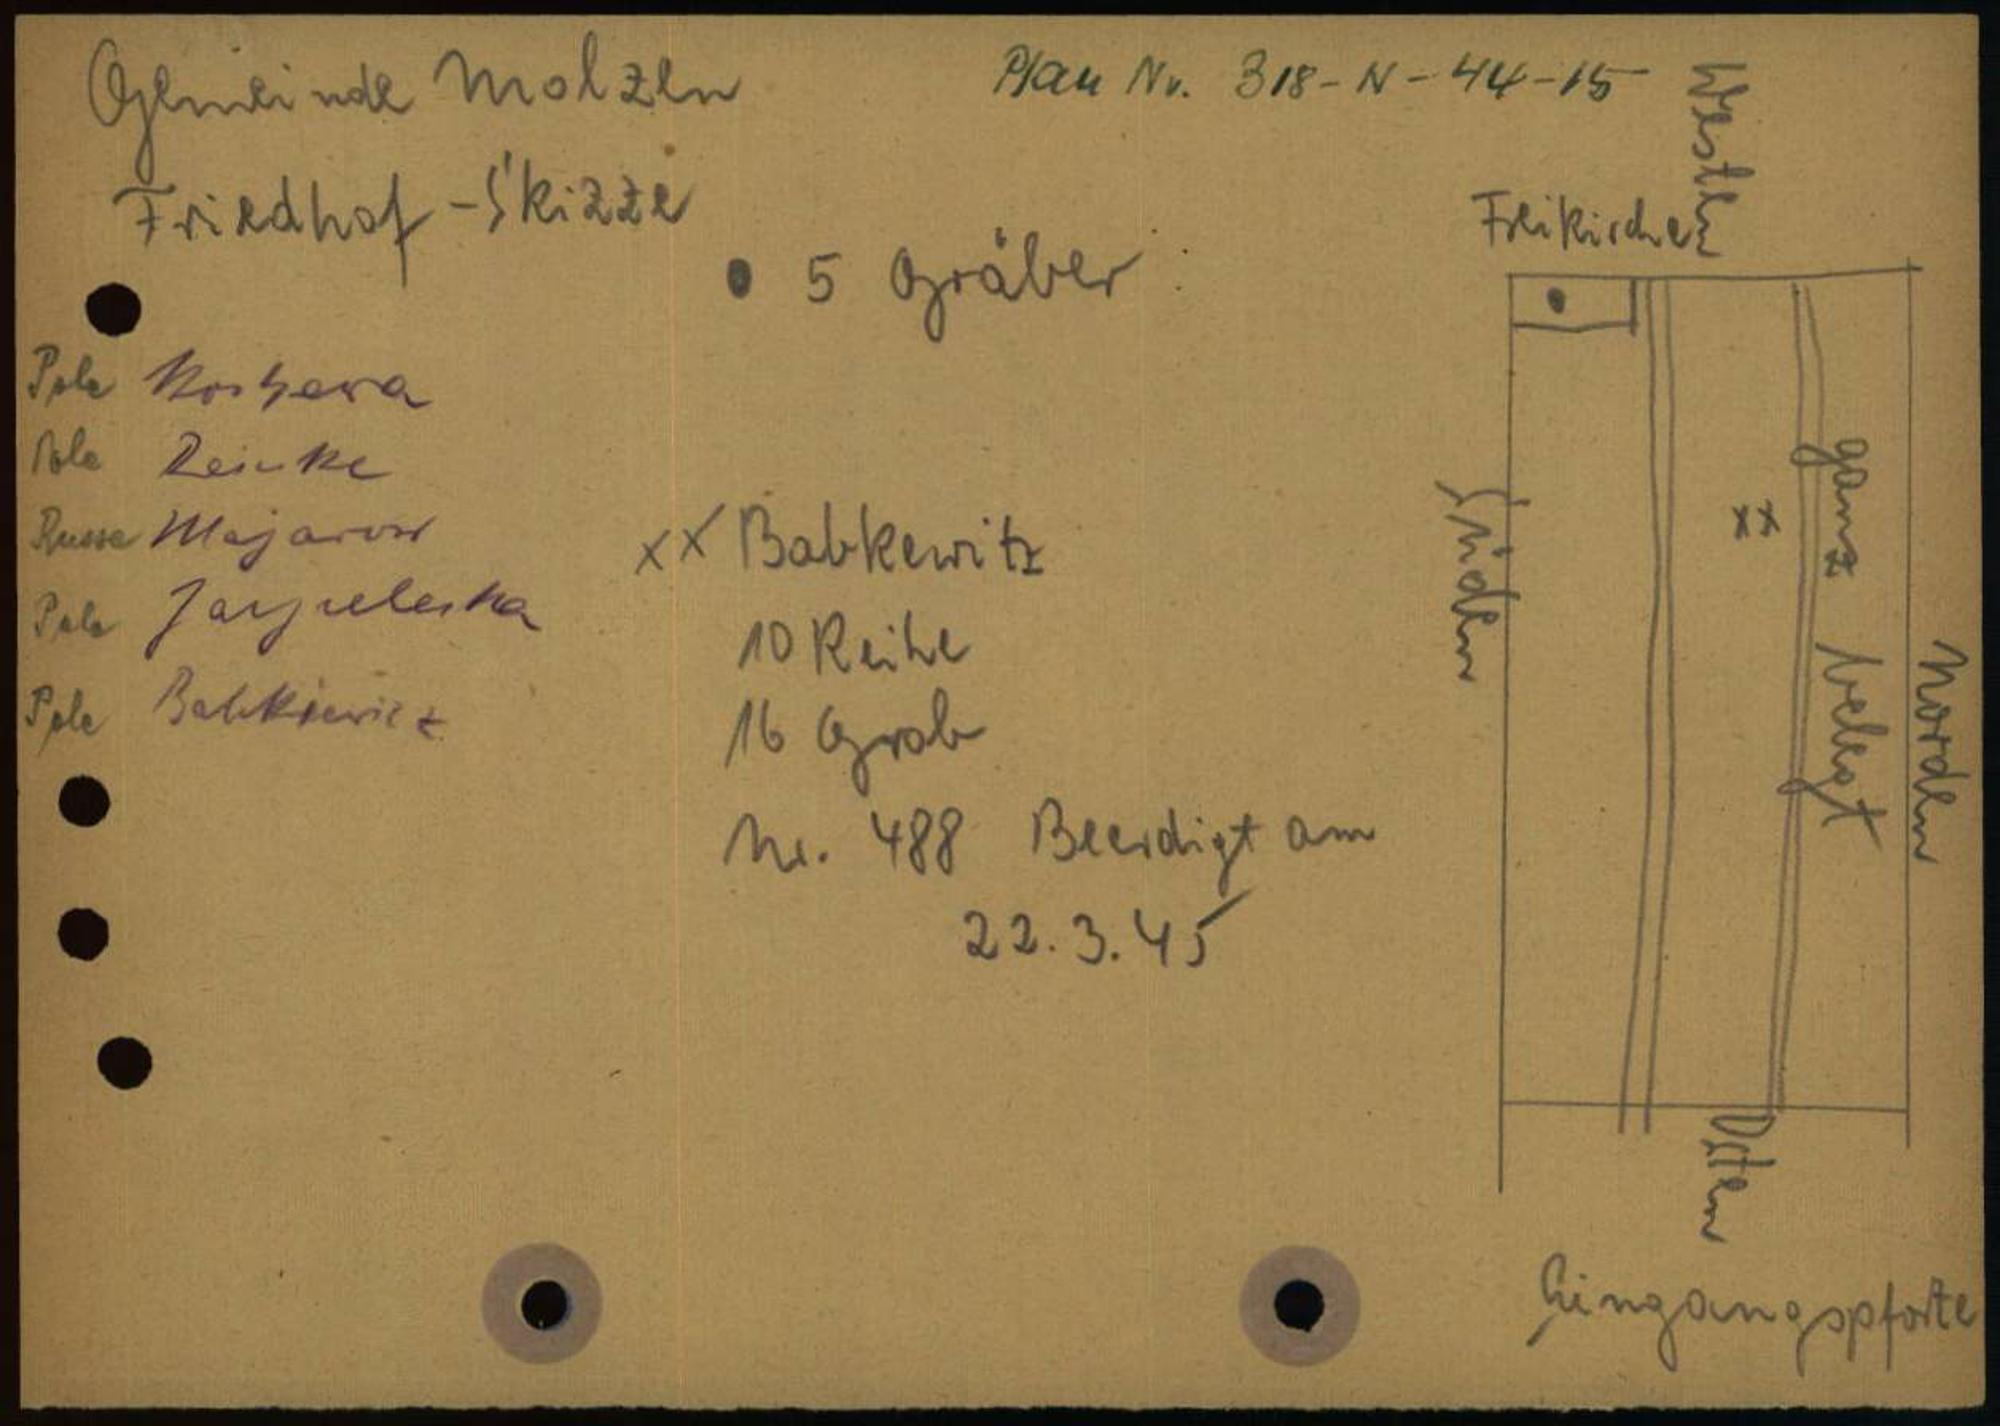 Gemeinde Molzen
Plan Nr. 318-N-44-15
Friedhof-Skizze
• 5 Gräber
Pole
Pole Reinke
Russe Majarow
Pole
Pole Babkiewicz
xx Babkewitz
10 Reihe
16 Grab
Nr. 488 Beerdigt am
22.3.45
Westen
Freikirchen
Süden
xx
ganz belegt
Norden
Osten
Eingangspforte